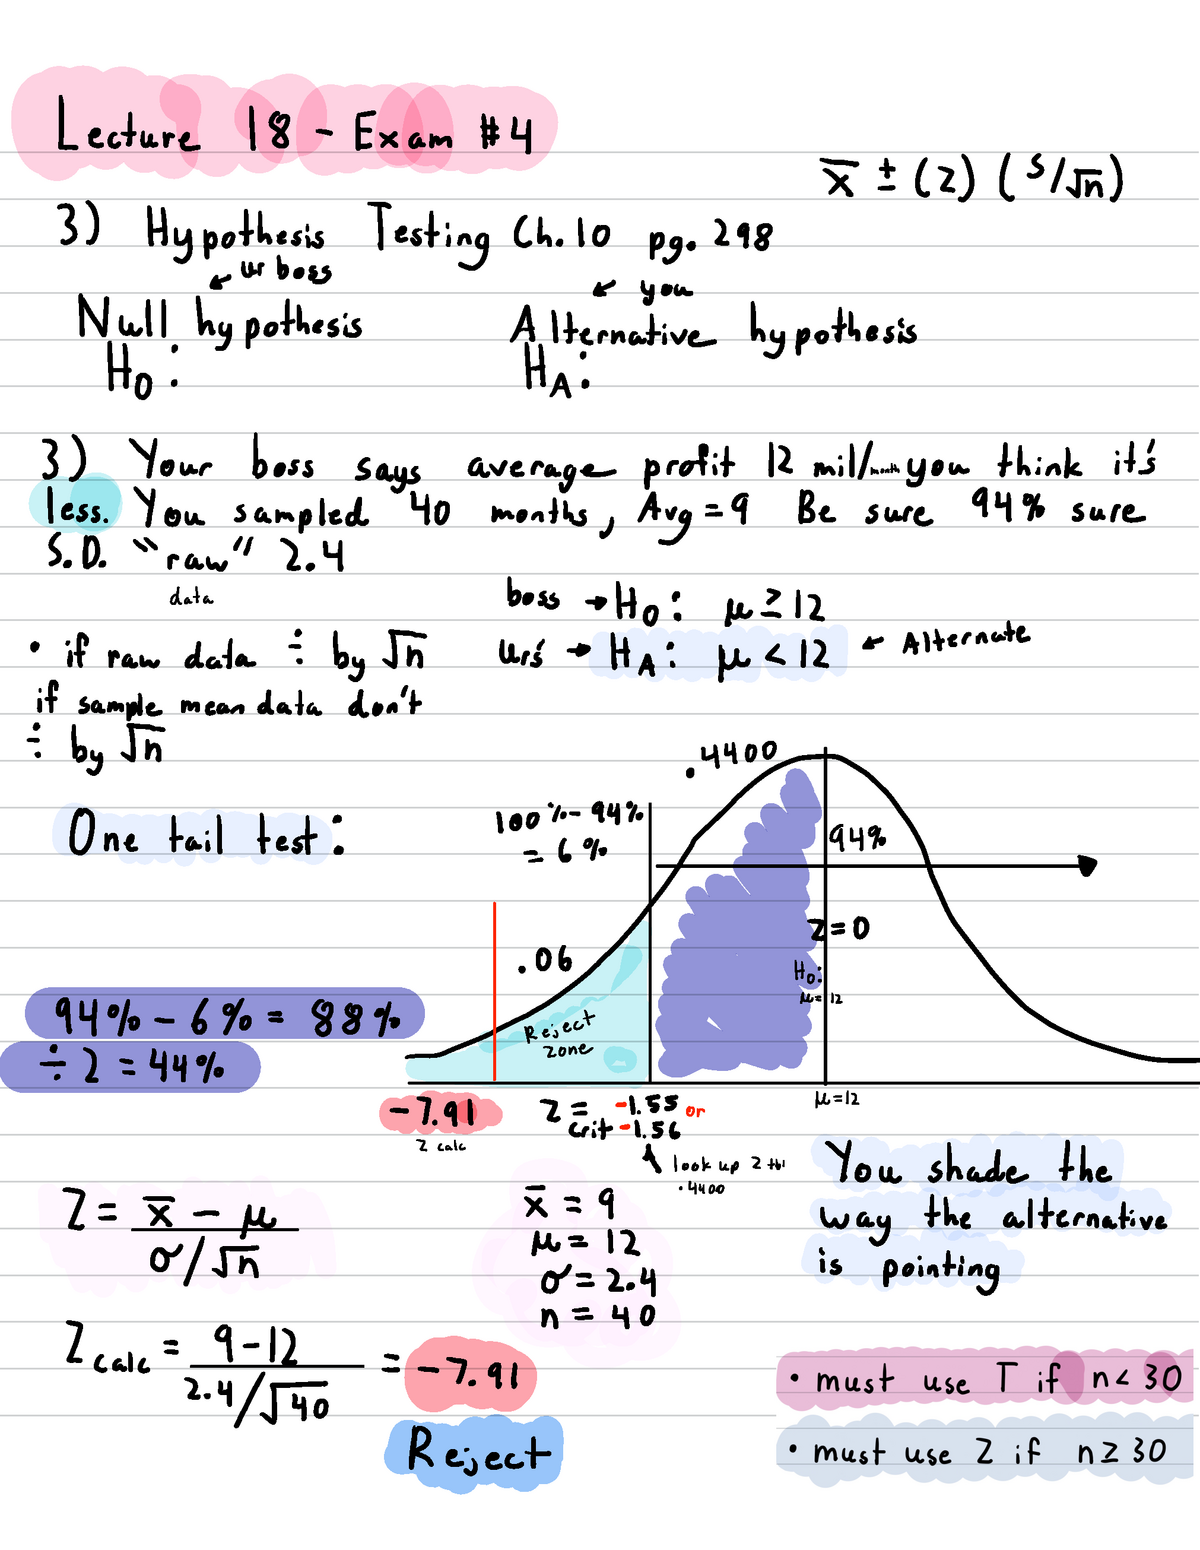 Lecture 18 - Exam #4
x̄ ± (z) (s/√n)
3) Hypothesis Testing Ch. 10 pg. 298
↙ ur boss
↙ you
Null hypothesis
Alternative hypothesis
H₀:
H_A:
3) Your boss says average profit 12 mil/month you think it's
less. You sampled 40 months, Avg = 9 Be sure 94% sure
S.D. "raw" 2.4
data
boss → H₀: μ ≥ 12
• if raw data ÷ by √n
urs → H_A: μ < 12 ← Alternate
if sample mean data don't
÷ by √n
.4400
One tail test:
100% - 94%
= 6%
94%
z = 0
.06
H₀:
μ = 12
94% - 6% = 88%
÷ 2 = 44%
Reject
zone
-7.91
z calc
z = -1.55 or
crit -1.56
μ = 12
↑ look up z tbl
.4400
You shade the
way the alternative
is pointing
z = x̄ - μ
σ/√n
x̄ = 9
μ = 12
σ = 2.4
n = 40
z calc = 9 - 12 = -7.91
2.4/√40
Reject
• must use T if n < 30
• must use z if n ≥ 30